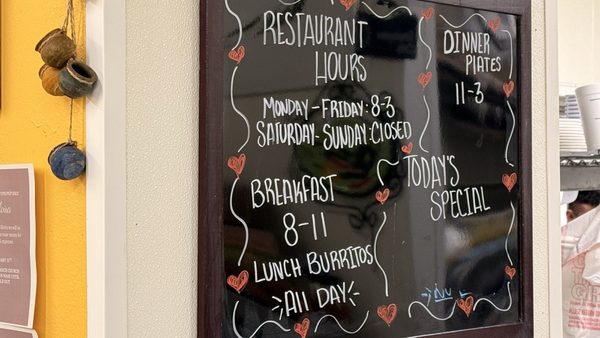 RESTAURANT
HOURS
MONDAY-FRIDAY: 8-3
SATURDAY-SUNDAY: CLOSED
BREAKFAST
8-11
LUNCH BURRITOS
All DAY
DINNER
PLATES
11-3
TODAY'S
SPECIAL